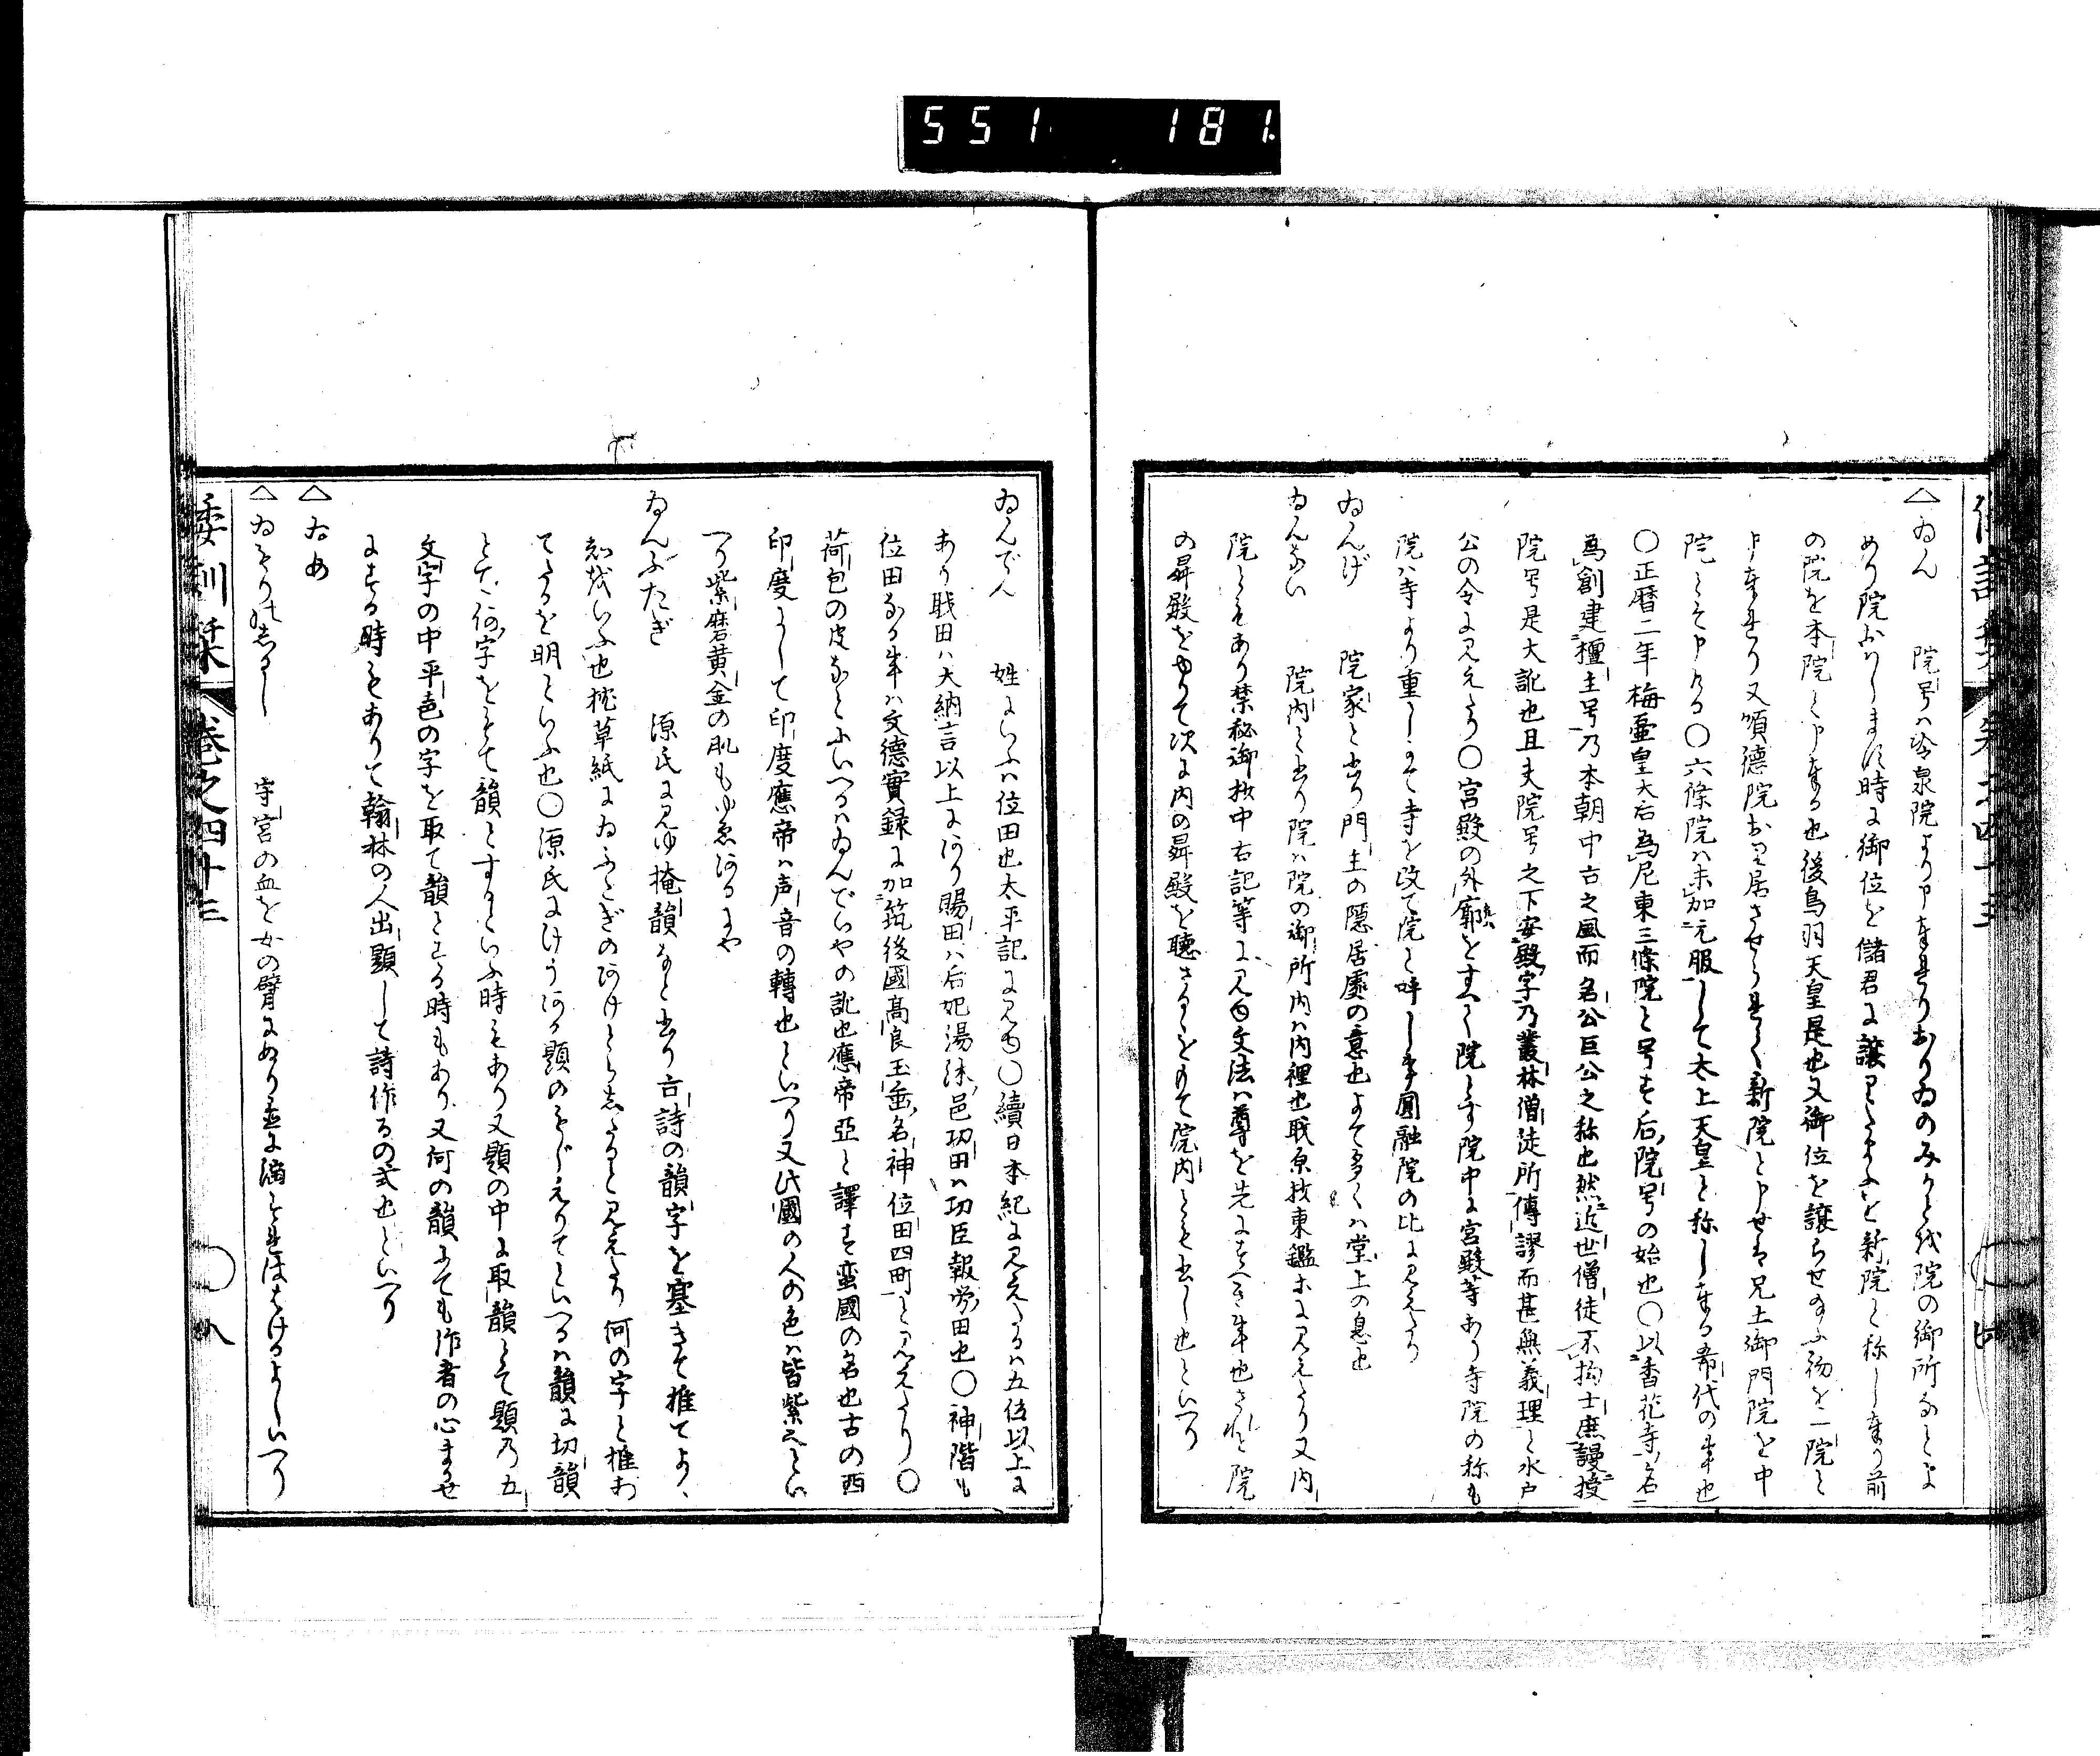 551 181
△ゐん 院号ハ冷泉院より申奉れりおりゐのみかと代院の御所なとよ
めり院おハします時に御位を儲君に譲りたまふを新院と称し奉り前
の院を本院と申奉る也後鳥羽天皇是也又御位を譲らせ給ふ初を一院と
申奉れり又順德院おり居させられしく新院と申せは兄土御門院を中
院とそ申ける〇六條院ハ未加元服して太上天皇と称し奉る希代の事也
〇正曆二年梅壷皇大后為尼東三條院と号す后院号の始也〇以香花寺名
為創建檀主号乃本朝中古之風而名公巨公之称也然近世僧徒不拘士庶謾授
院号是大訛也且夫院号之下安殿字乃叢林僧徒所傳謬而甚無義理と水戸
公の令に見えたり〇宮殿の外廓をすへく院とす院中に宮殿等あり寺院の称も
院ハ寺より重しかて寺を改て院と呼し事圓融院の比に見えたり
ゐんげ 院家と書り門主の隠居處の意也よて多くハ堂上の息也
ゐんない 院内と書り院ハ院の御所内ハ内裡也職原抄東鑑等に見えたり又内
院ともあり禁秘御抄中右記等に見ゆ文法ハ尊を先にすへき事也されと院
の昇殿をゆりて次に内の昇殿を聴さるゝをもて院内とも書し也といへり
ゐんでん 姓にいふハ位田也太平記に見ゆ〇續日本紀に見えたるハ五位以上に
あり職田ハ大納言以上にあり賜田ハ后妃湯沐邑功田ハ功臣報労田也〇神階も
位田ある事ハ文德實録に加筑後國高良玉垂名神位田四町と見えたり〇
荷包の皮なとにいへるハゐんでいやの訛也應帝亞と譯す蛮國の名也古の西
印度にして印度應帝ハ声音の轉也といへり又此國の人の色ハ皆紫之とい
へり紫磨黄金の肌もゆゑあるにや
ゐんぶたぎ 源氏に見ゆ掩韻なと書り古詩の韻字を塞きて推てよ、
知をいふ也枕草紙にゐふたぎのあけとらしたると見えたり何の字と推お
てたるを明といふ也〇源氏にけうある題のもじえりてといへるハ韻に切韻
とて何字をもて韻とするといふ時もあり又題の中に取韻とて題乃五
文字の中平色の字を取て韻とする時もあり又何の韻にても作者の心まかせ
にする時もありて翰林の人出題して詩作るの式也といへり
△ゐめ
△ゐもりのしるし 守宮の血を女の臂にぬり
倭訓栞 巻之四十三 〇八